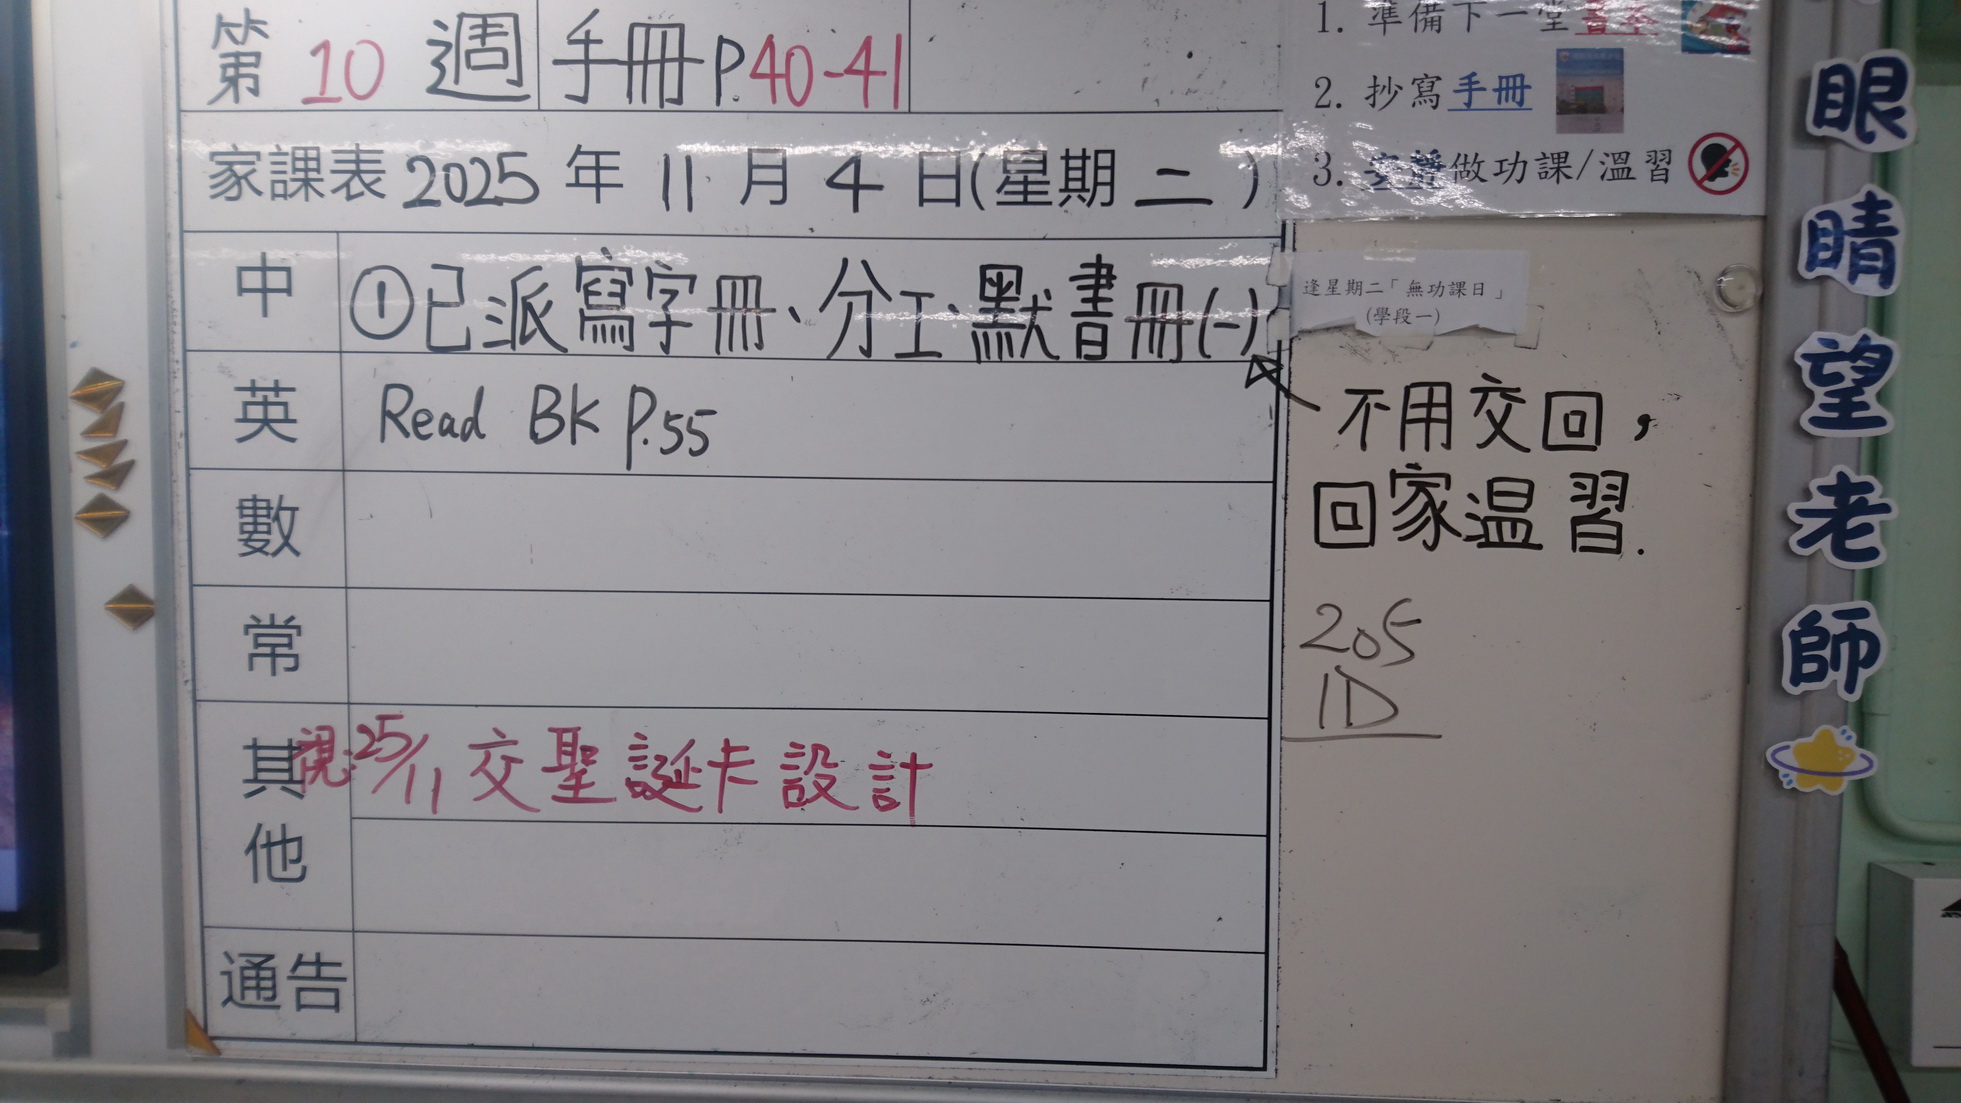 第 10 週 手冊 P.40-41
家課表 2025 年 11 月 4 日(星期 二 )
中 ①已派寫字冊、分工、默書冊(一)
英 Read BK P.55
數
常
其他 視:25/11 交聖誕卡設計
通告
1. 準備下一堂書本
2. 抄寫手冊
3. 安靜做功課/溫習
逢星期二「無功課日」
(學段一)
不用交回，
回家温習.
205
1D
眼睛望老師